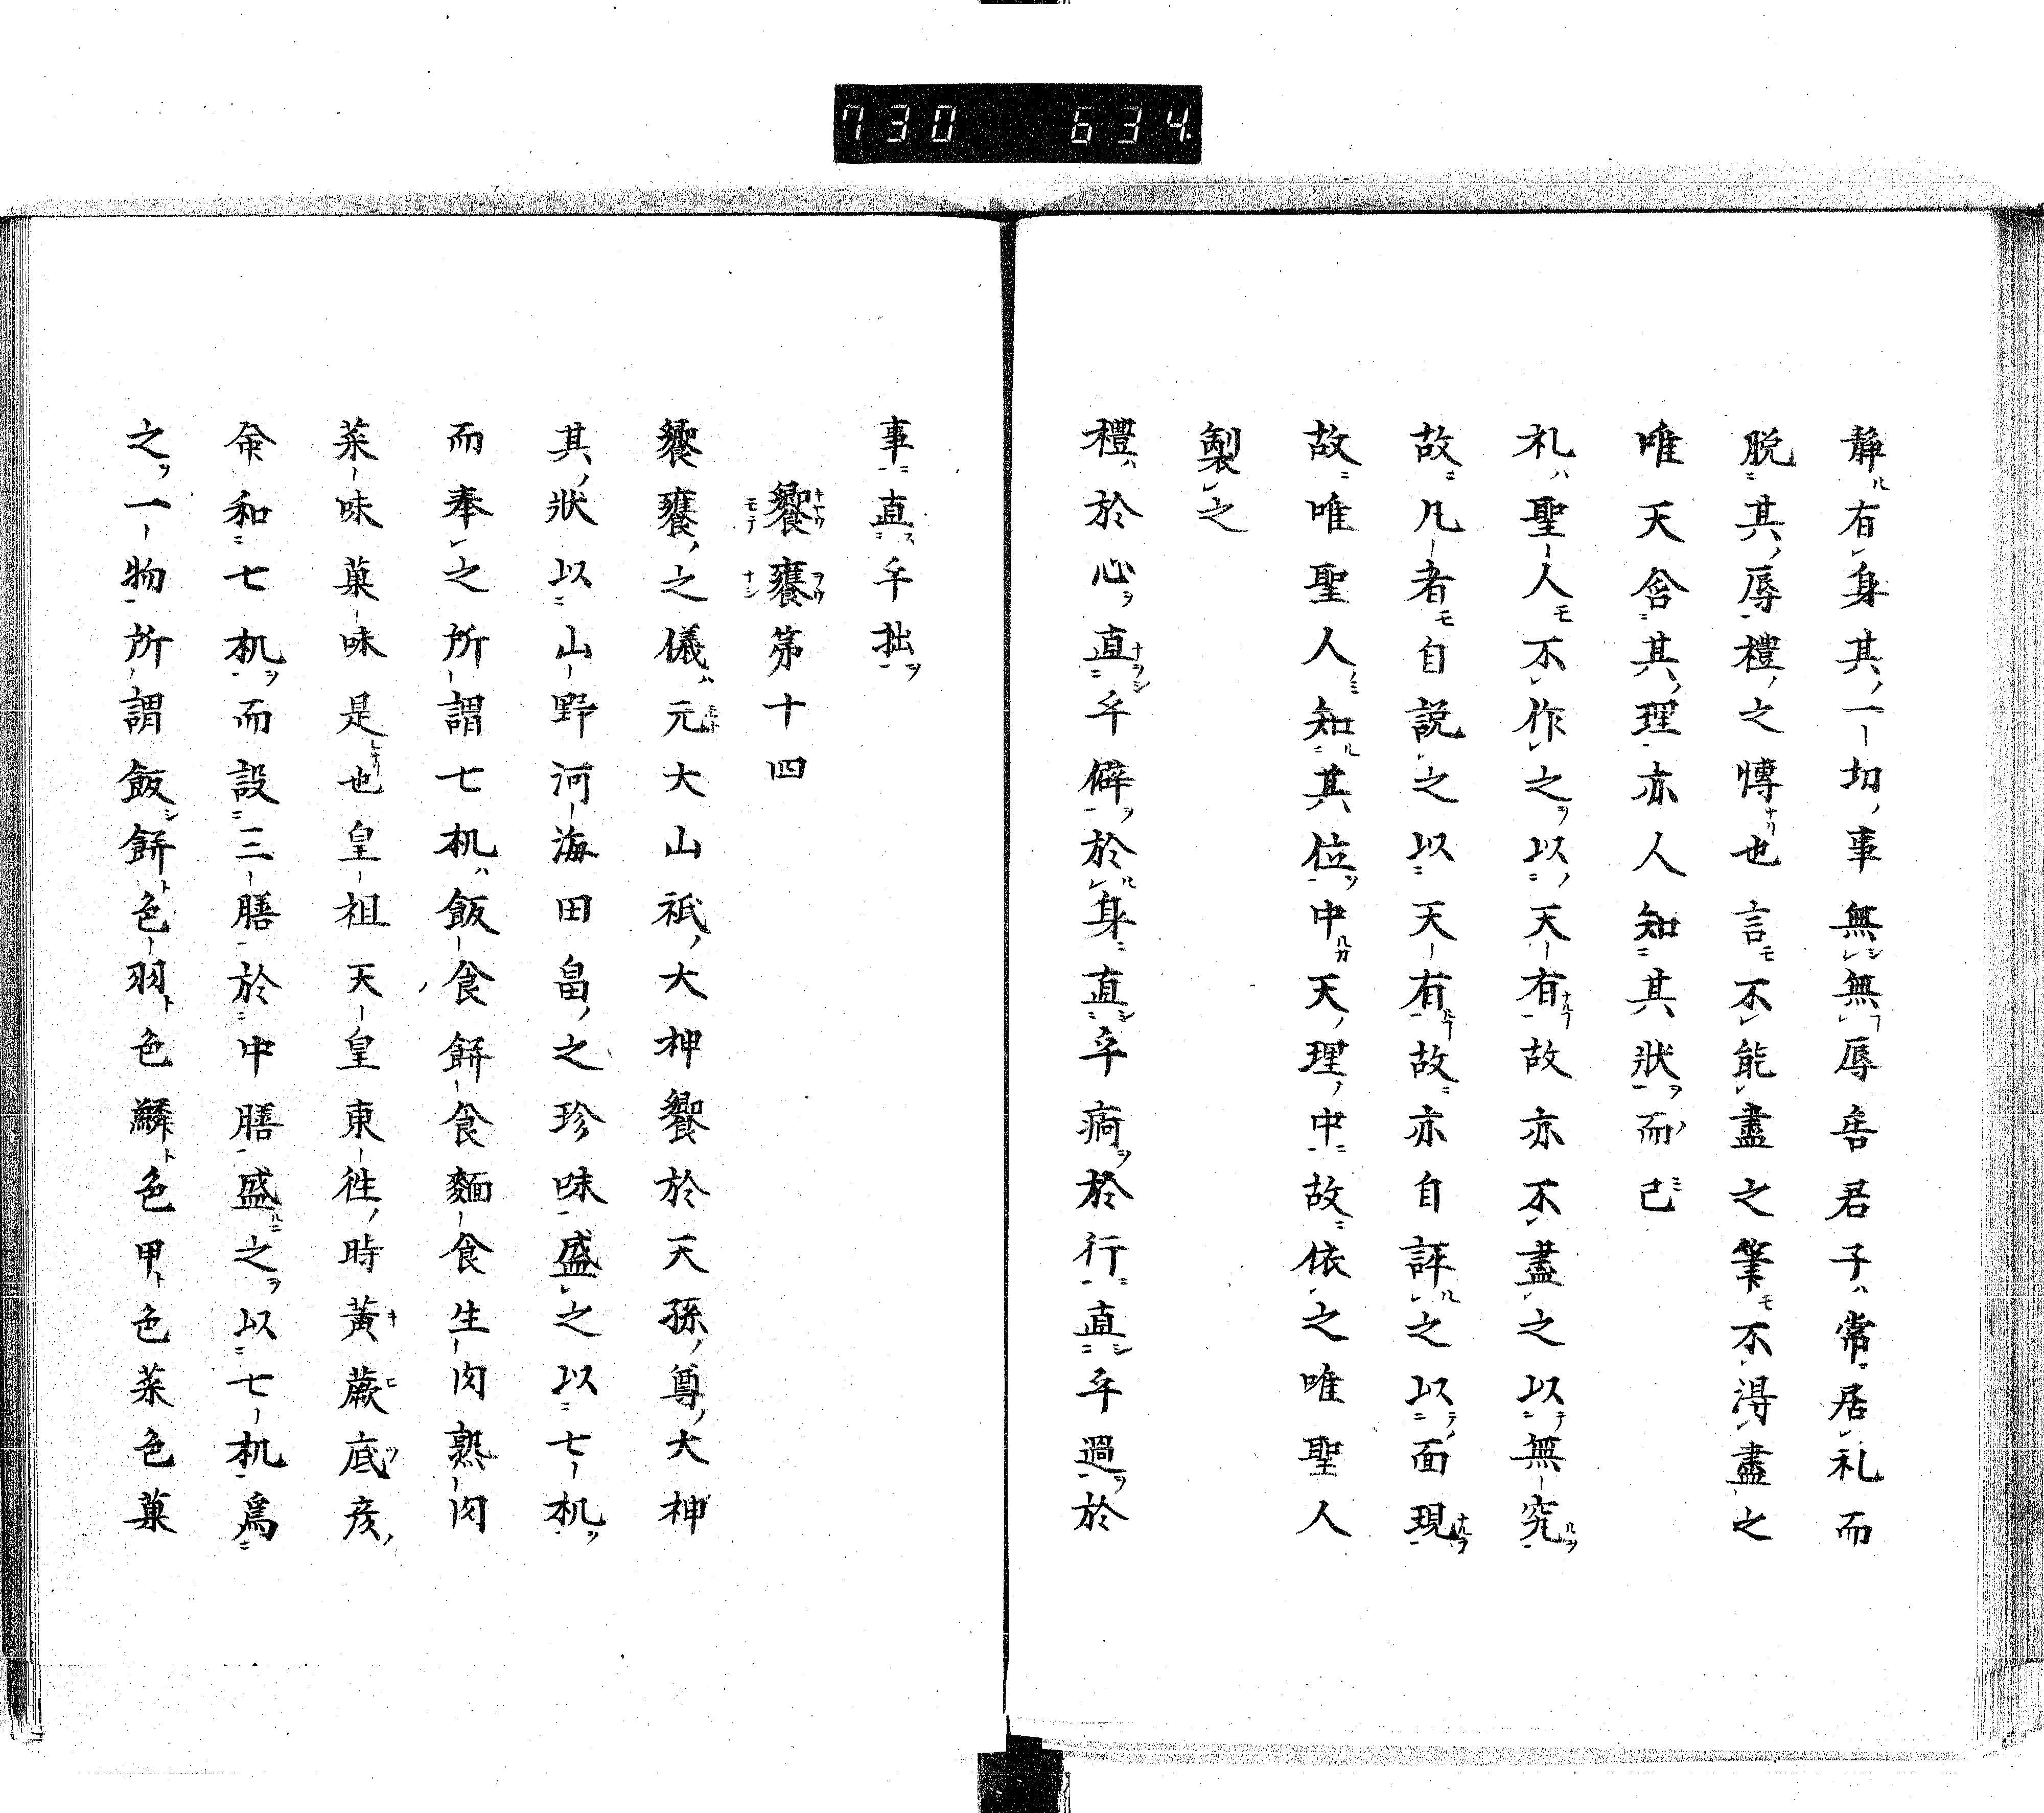 730 634
静有身其一切事無無辱告君子常居礼而
脱其辱禮之博也言不能盡之筆不得盡之
唯天含其理亦人知其狀而已
礼聖人不作之以天有故亦不盡之以無究
故凡者自説之以天有故亦自評之以面現
故唯聖人知其位中天理中故依之唯聖人
製之
禮於心直乎僻於身直乎病於行直乎過於
事直乎拙
饗饔第十四
饗饔之儀元大山祇大神饗於天孫尊大神
其狀以山野河海田畠之珍味盛之以七机
而奉之所謂七机飯食餅食麵食生肉熟肉
菜味菓味是也皇祖天皇東徃時黃蕨底彦
命和七机而設三膳於中膳盛之以七机爲
之一物所謂飯餅色羽色鱗色甲色菜色菓